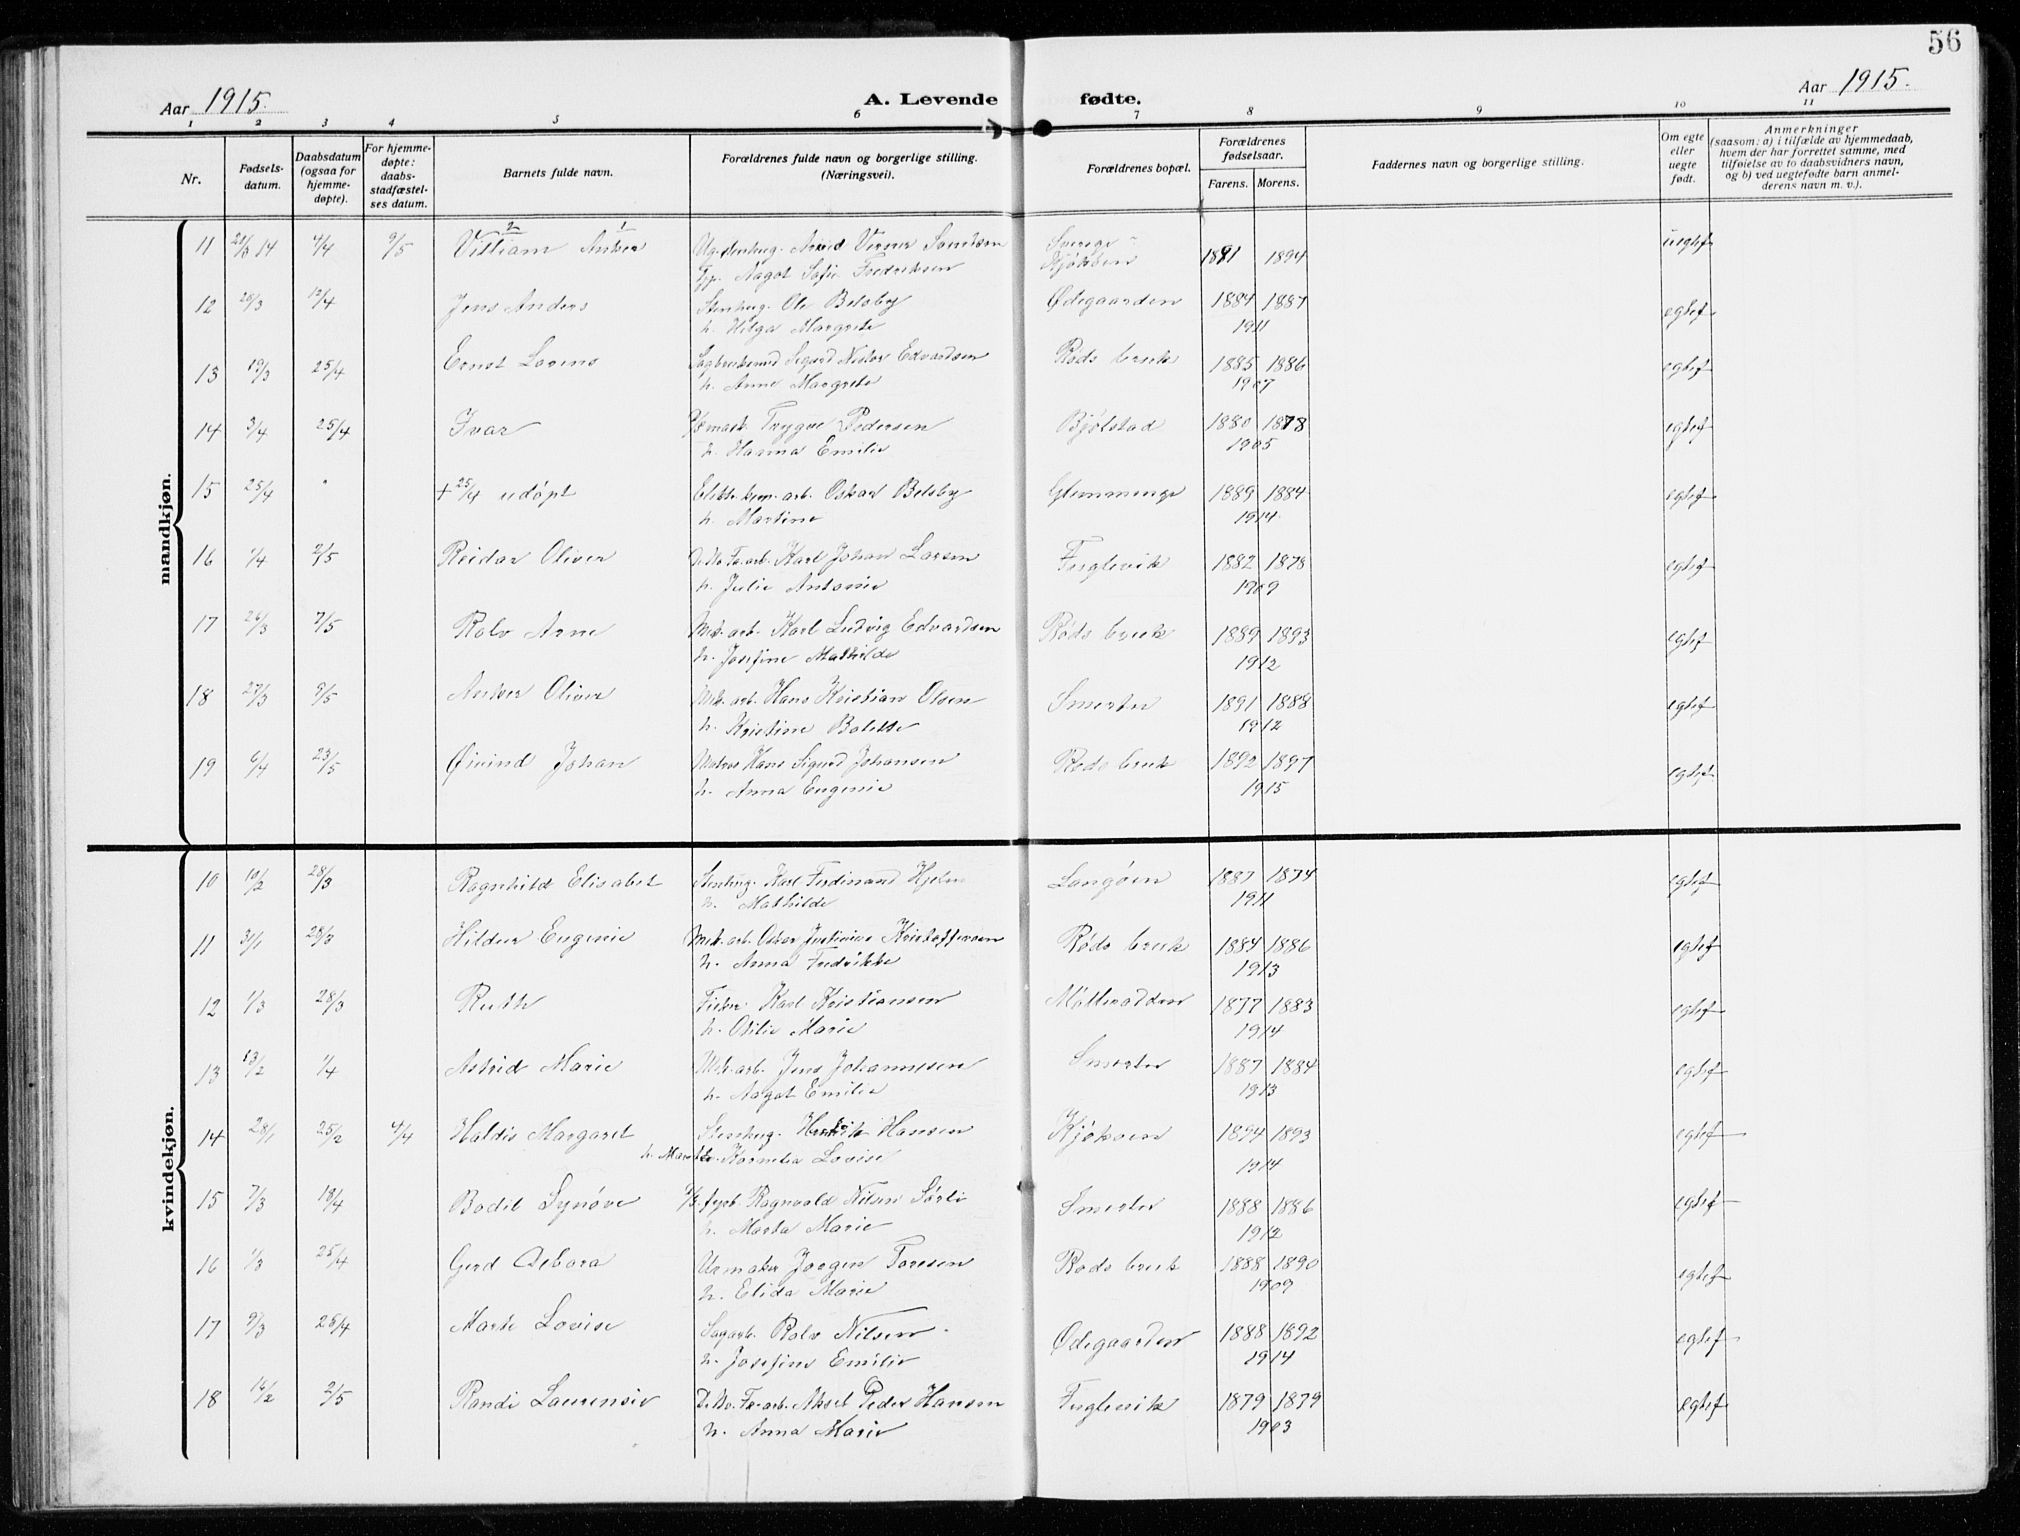 56
Aar 1915.
A. Levende fødte.
Aar 1915.
1 2 3 4 5 6 7 8 9 10 11
Nr.
Fødsels-
datum.
Daabsdatum
(ogsaa for
hjemme-
døpte).
For hjemme-
døpte:
daabs-
stadfæstel-
ses datum.
Barnets fulde navn.
Forældrenes fulde navn og borgerlige stilling.
(Næringsvei).
Forældrenes bopæl.
Forældrenes
fødselsaar.
Farens. Morens.
Faddernes navn og borgerlige stilling.
Om egte
eller
uegte
født.
Anmerkninger
(saasom: a) i tilfælde av hjemmedaab,
hvem der har forrettet samme, med
tilføielse av to daabsvidners navn,
og b) ved uegtefødte barn anmel-
derens navn m. v.).
mandkjøn.
2 1
11 4/4 9/5 William Anker Ug. stenhug. Arvid Verner Sverige - 1891 1894 uegtef
Pp. Nagot Sofie Fredriksen
12 20/3 12/4 Jens Anders Stenhug. Ole Belsby Ødegaarden 1884 1887 egtef
h. Helga Margrete 1911
13 19/3 25/4 Ernst Lorens Sigurd Edvardsen Røds bruk 1885 1886 egtef
h. Anne Margrete 1907
14 3/4 25/4 Ivar Trygve Pedersen Bjølstad 1880 1878 egtef
h. Hanna Emilie 1905
15 25/4 " + 25/4 udøpt arb. Oskar Belsby Glemminge 1889 1884 egtef
h. Martine 1914
16 1/4 2/5 Reidar Oliver Karl Johan Larsen Fuglevik 1882 1878 egtef
h. Julie Antonie 1909
17 26/3 2/5 Rolv Arne Mek. arb. Karl Ludvig Edvardsen Røds bruk 1889 1893 egtef
h. Josefine Mathilde 1912
18 27/3 9/5 Anker Oliver Mek. arb. Hans Kristian Olsen Smerter 1891 1888 egtef
h. Kristine Bolette 1912
19 6/4 23/5 Øivind Johan Matros Hans Sigurd Johansen Røds bruk 1892 1897 egtef
h. Anna Eugenie 1915
kvindekjøn.
10 10/2 28/3 Ragnhild Elisabet Stenhug. Karl Ferdinand Hjelm Langøen 1887 1874 egtef
h. Mathilde 1911
11 31/1 28/3 Hildur Eugenie Mek. arb. Oskar Justinius Kristoffersen Røds bruk 1884 1886 egtef
h. Anna Fredrikke 1913
12 1/3 28/3 Ruth Fisker Karl Kristiansen Møllerodden 1877 1883 egtef
h. Otilie Marie 1914
13 13/2 1/4 Astrid Marie Mek. arb. Jens Johannesen Smerter 1887 1884 egtef
h. Nagot Emilie 1913
14 28/1 25/2 4/4 Haldis Margaret Stenhug. Henrik Hansen Kjøkøen 1894 1893 egtef
Kornelia Lovise 1914
15 7/3 18/4 Bodil Synøve Ragnvald Nilsen Sørli Smerter 1888 1886 egtef
h. Marta Marie 1912
16 1/3 25/4 Gerd Debora Urmaker Jørgen Toresen Røds bruk 1888 1890 egtef
h. Elida Marie 1909
17 9/3 25/4 Marte Lovise Sagarb. Rolv Nilsen Ødegaarden 1888 1892 egtef
h. Josefine Emilie 1914
18 14/2 2/5 Randi Laurensie Aksel Peder Hansen Fuglevik 1879 1879 egtef
h. Anna Marie 1903